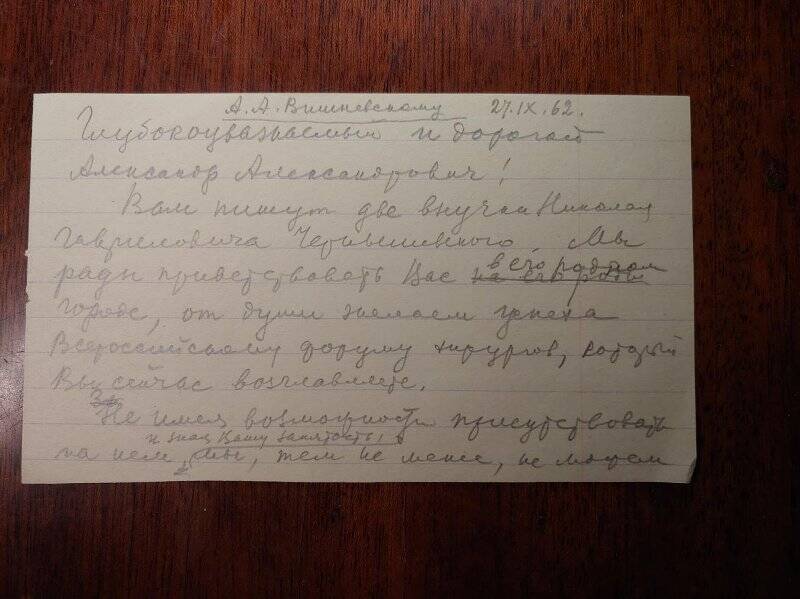 А. А. Вишневскому 27.IX.62.
Глубокоуважаемый и дорогой
Александр Александрович!
Вам пишут две внучки Николая
Гавриловича Чернышевского. Мы
рады приветствовать Вас на его родн
в его родном
городе, от души желаем успеха
Всероссийскому форуму хирургов, который
Вы сейчас возглавляете.
Не имея возможности присутствовать
и зная Вашу занятость,
на нем, мы, тем не менее, не можем